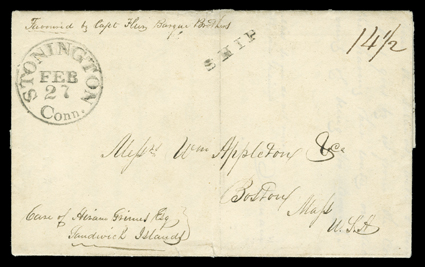 Favored by Capt Barque Brothers
SHIP
14 1/2
STONINGTON
FEB
27
Conn.
Messrs Wm Appleton & Co
Boston
Mass
U.S.A
Care of Hiram Grimes Esq
Sandwich Islands